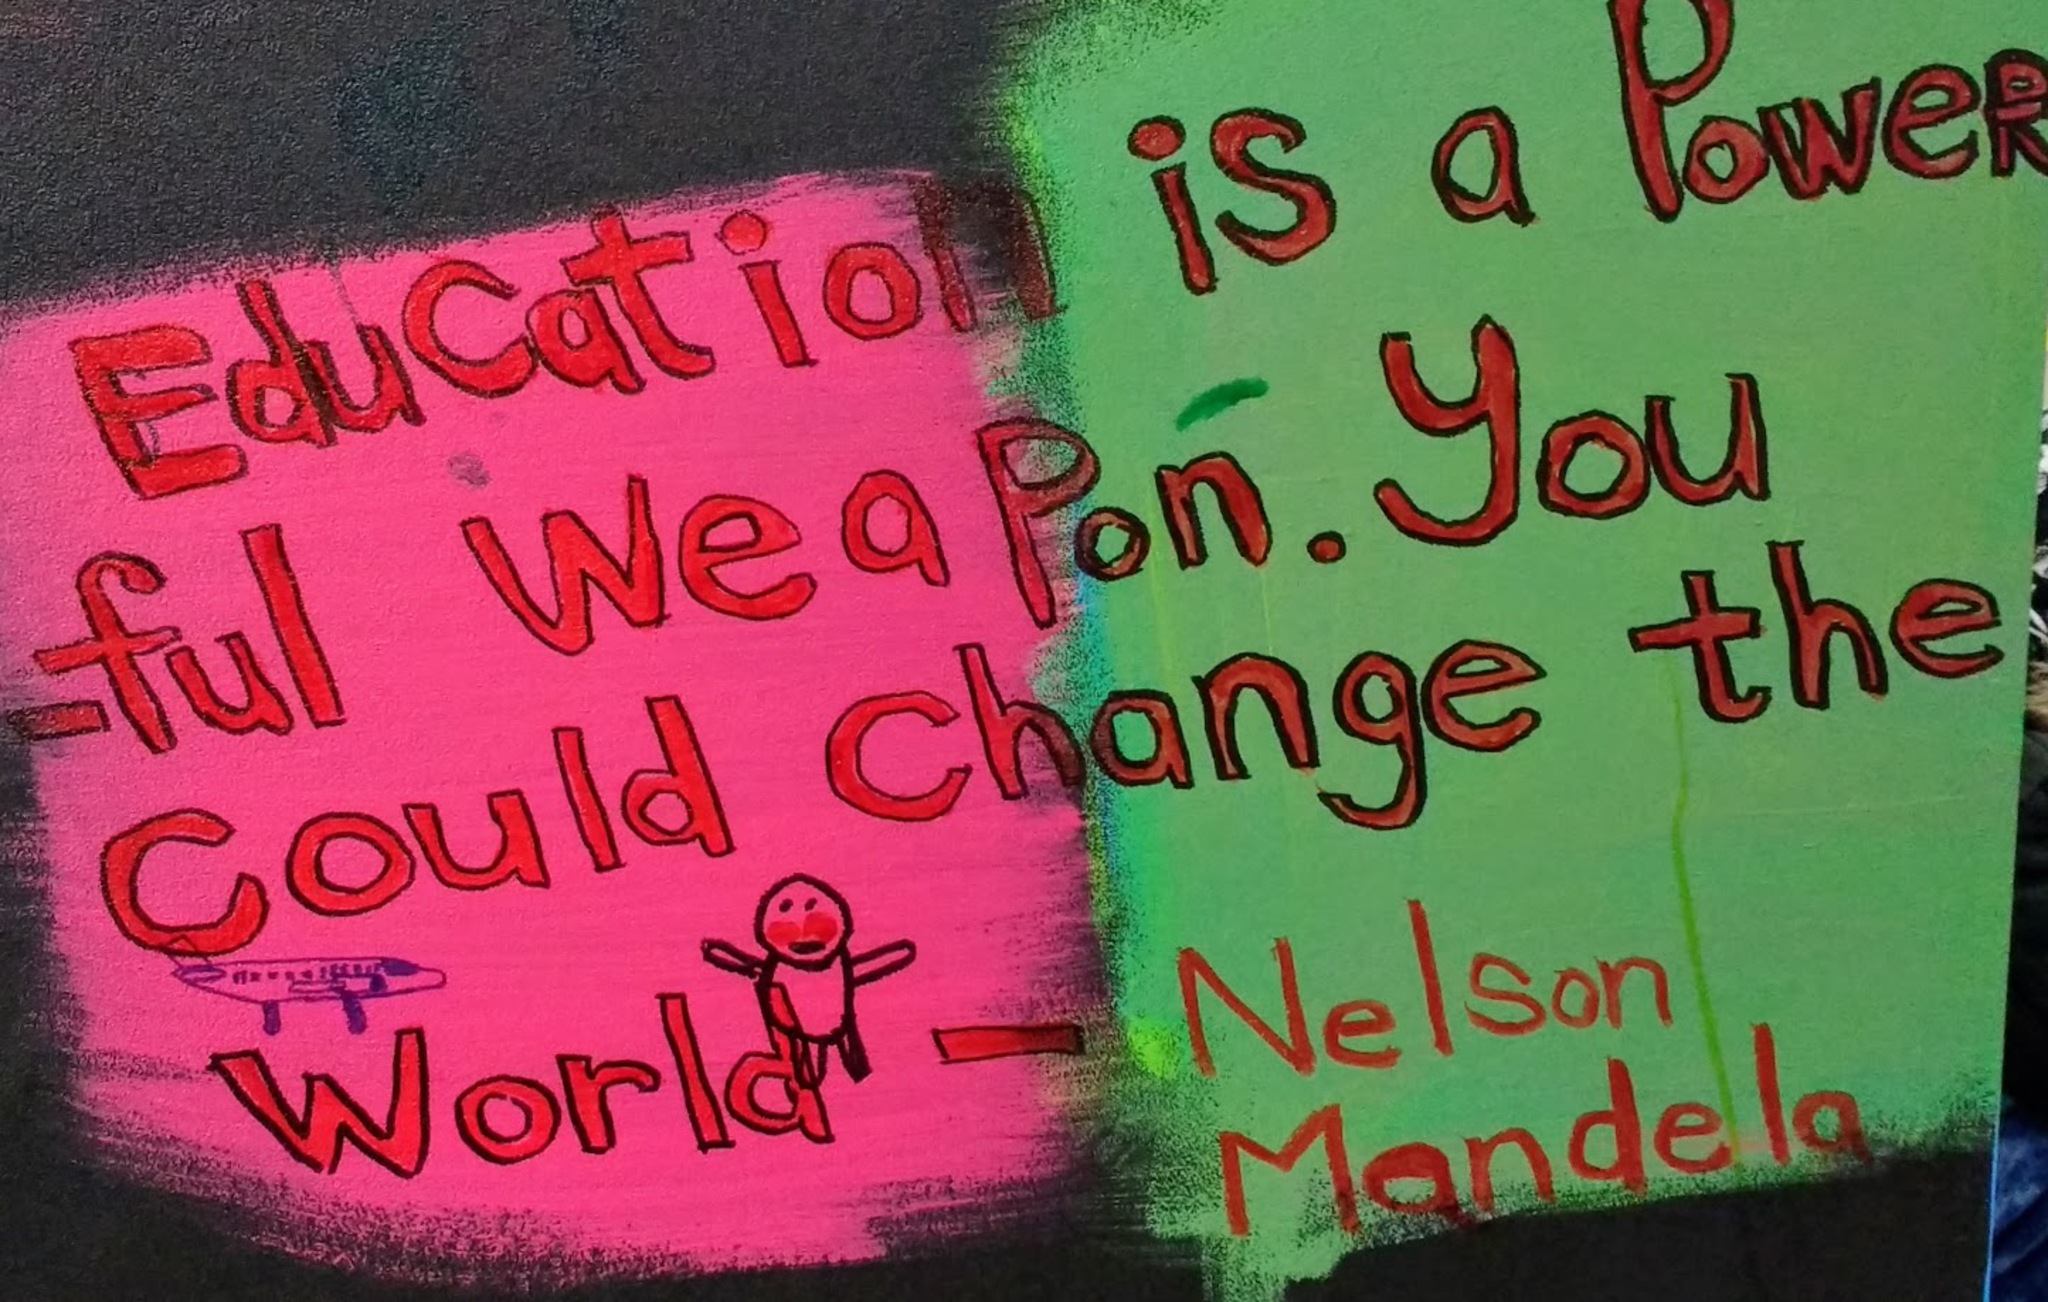 Education is a Power
-ful weapon. You
Could Change the
World - Nelson
Mandela